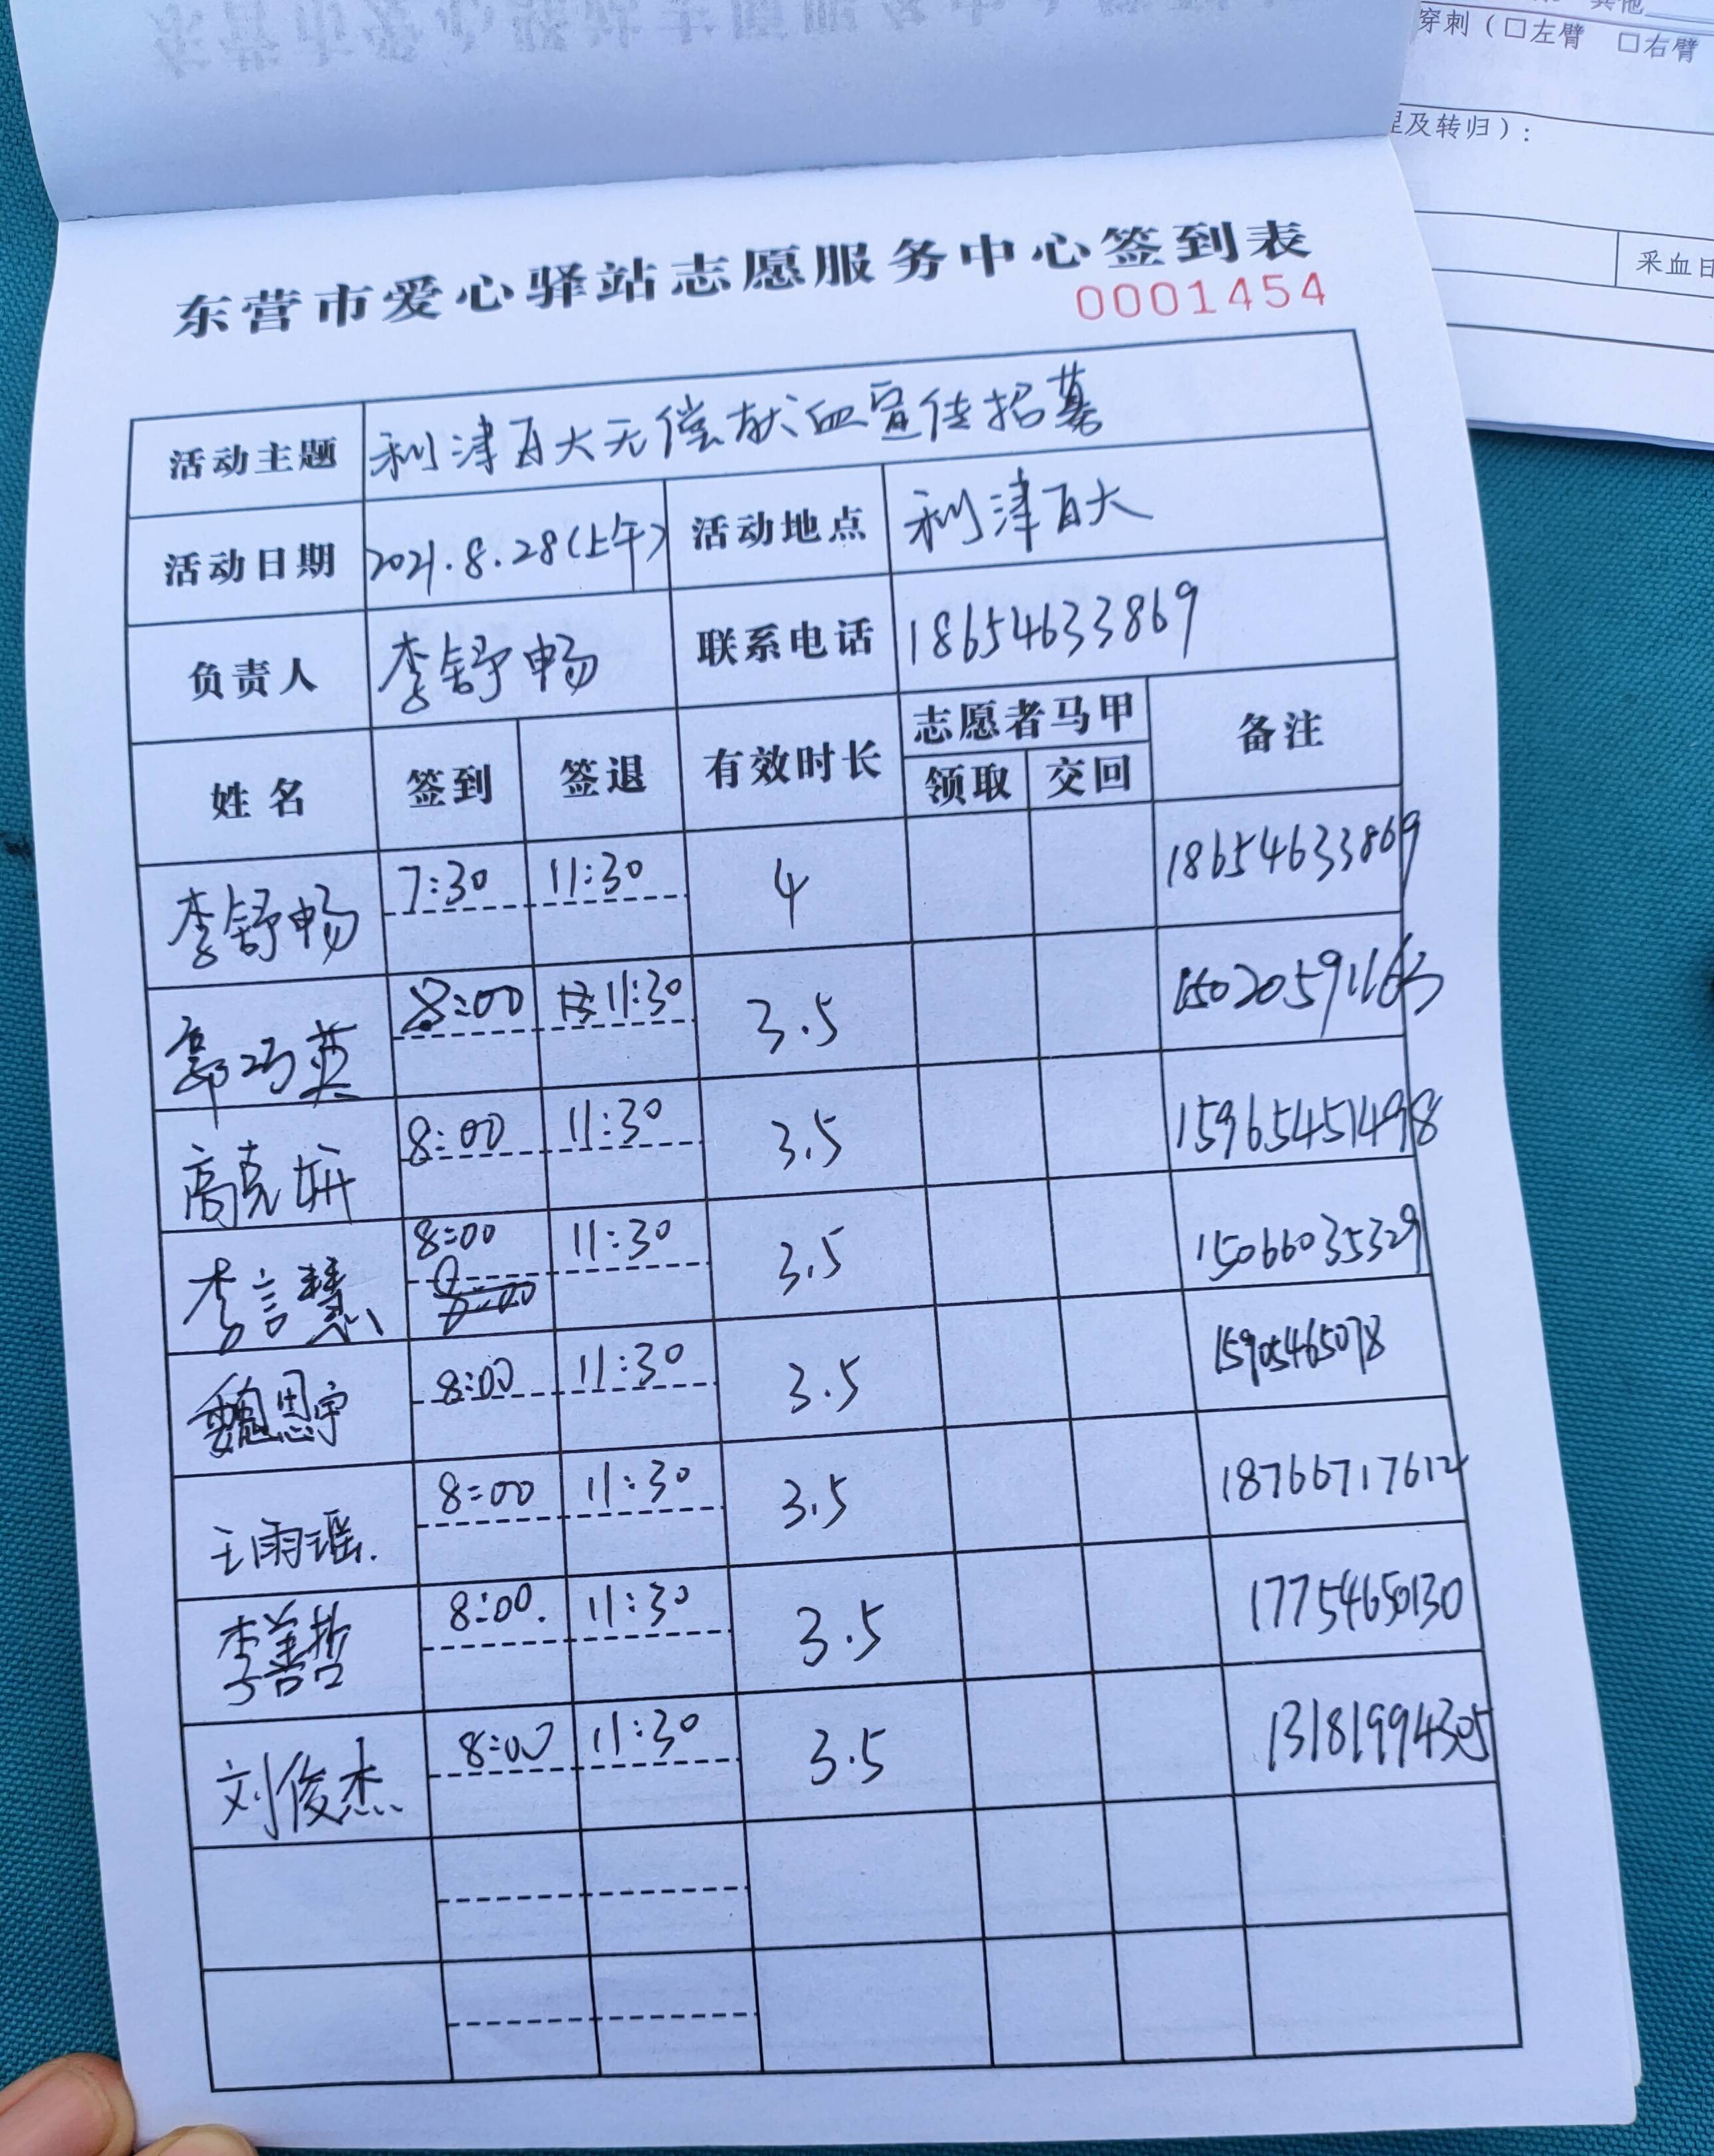 穿刺（□左臂 □右臂
及转归）：
采血日
东营市爱心驿站志愿服务中心签到表
0001454
活动主题 利津百大无偿献血宣传招募
活动日期 2021.8.28(上午) 活动地点 利津百大
负责人 李舒畅 联系电话 18654633869
姓名 签到 签退 有效时长 志愿者马甲 备注
领取 交回
李舒畅 7:30 11:30 4 18654633869
郭巧英 8:00 11:30 3.5 15020591163
高克妍 8:00 11:30 3.5 15965451498
李言慧 8:00 11:30 3.5 15066035329
8:00
魏恩宇 8:00 11:30 3.5 15905465078
王雨瑶. 8:00 11:30 3.5 18766717612
李善哲 8:00. 11:30 3.5 17754650130
刘俊杰 8:00 11:30 3.5 13181994305